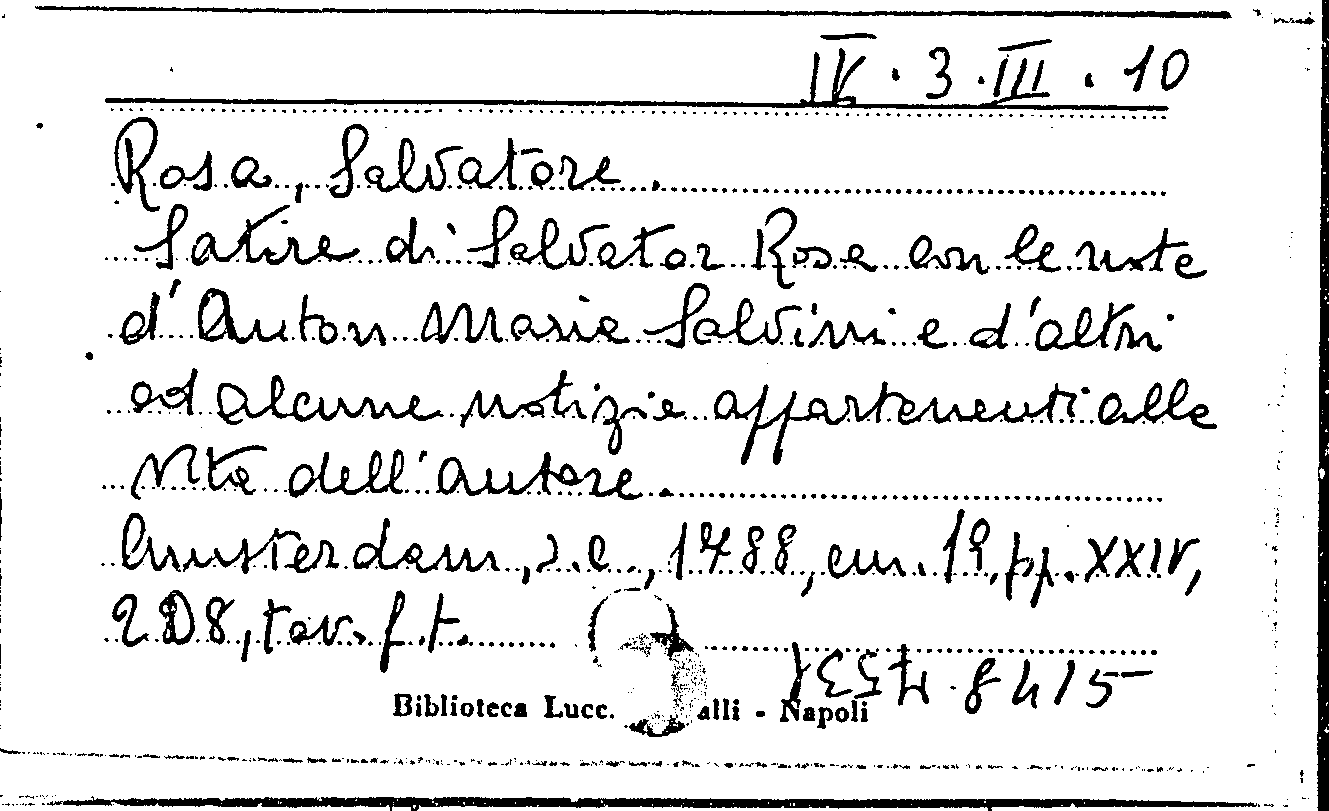 IV. 3. III. 10
Rosa, Salvatore.
Satire di Salvator Rosa con le note
d'Anton Maria Salvini e d'altri
ed alcune notizie appartenenti alla
vita dell'autore.
Amsterdam, s.e., 1788, cm. 19, pp. XXIV,
208, tav. f.t.
Biblioteca Lucc. alli - Napoli